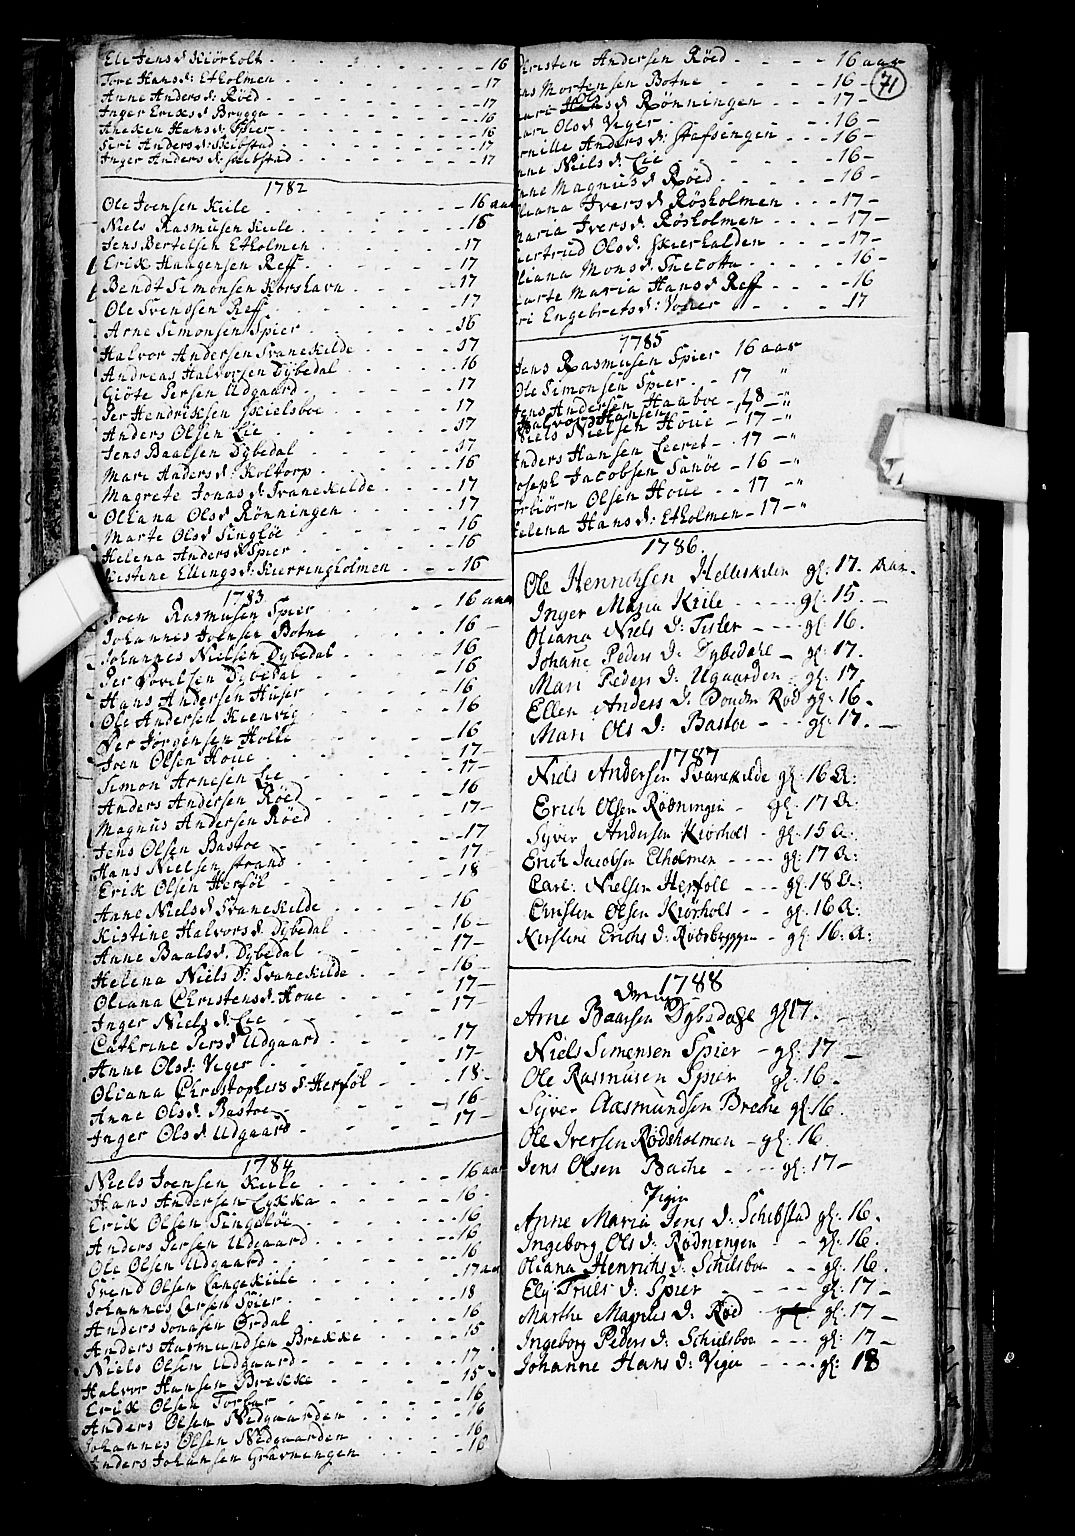 Eli Jens d: Kiörholt - - - 16
Tore Hans d: Etholmen - - - 17
Anne Anders d: Röed - - - 17
Inger Eriks d: Brygga - - - 16
Aneken Hans d: Spier - - - 16
Siri Anders d: Skibstad - - - 17
Inger Anders d: Skibstad - - - 17
1782
Ole Joensen Kiile - - - 16 aar
Niels Rasmusen Kiile - - - 16
Jens Bertelsen Etholmen - - - 17
Erik Haagensen Reff - - - 17
Bendt Simonsen Korshavn - - - 17
Ole Svendsen Reff - - - 17
Arne Simonsen Spier - - - 16
Halvor Andersen Svanekilde - - - 17
Andreas Halvorsen Dÿbedal - - - 16
Giöte Persen Udgaard - - - 17
Per Hendriksen Skielsboe - - - 17
Anders Olsen Lie - - - 17
Jens Baalsen Dÿbedal - - - 17
Mari Anders d: Koltorp - - - 16
Magrete Jonas d: Svanekilde - - - 17
Oliana Ols d: Rönningen - - - 17
Marte Ols d: Singlöe - - - 16
Helena Anders d: Spier - - - 16
Kistine Ellings d: Kierringholmen - - - 16
1783
Joen Rasmusen Spier - - - 16 aar
Johannes Joensen Botne - - - 16 -
Johannes Nielsen Dybedal - - - 16
Per Povelsen Dybedal - - - 16
Hans Andersen Huser - - - 16
Ole Andersen Keenvig - - - 16
Per Jörgensen Holte - - - 16
Joen Olsen Houe - - - 17 -
Simon Arnesen Lie - - - 17 -
Anders Andersen Röed - - - 16
Magnus Andersen Röed - - - 17 -
Jens Olsen Bastoe - - - 17
Hans Nielsen Strand - - - 17 -
Erik Olsen Herföl - - - 18
Anne Niels d: Svanekilde - - - 16 -
Kistine Halvors d: Dÿbedal - - - 16 -
Anne Baals d: Dÿbedal - - - 17 -
Helena Niels d: Svanekilde - - - 16 -
Oliana Christens d: Houe - - - 17 -
Inger Niels d: Lie - - - 17 -
Cathrine Pers d: Udgaard - - - 17
Anne Ols d: Veger - - - 17 -
Oliana Christophers d: Herföl - - - 18 -
Anne Ols d: Bastoe - - - 16
Inger Ols d: Udgaard - - - 17 -
1784
Niels Joensen Kiile - - - 16 aar
Hans Andersen Lykka - - - 16 -
Erik Olsen Singelöe - - - 16
Anders Persen Udgaard - - - 16
Ole Olsen Udgaard - - - 16
Svend Olsen Langekiile - - - 17 aar
Johannes Larsen Spier - - - 18
Anders Jonasen Ørdal - - - 16
Anders Aasmundsen Brekke - - - 15
Niels Olsen Udgaard - - - 17
Halvor Hansen Brekke - - - 15
Erik Olsen Torfar - - - 16
Anders Olsen Nedgaarden - - - 16
Johannes Olsen Nedgaarden - - - 16
Anders Johansen Gravningen - - - 16
Kristen Andersen Röed - - - 16 aar
Mortensen Botne - - - 16 -
71
d: Rönningen - - - 17 -
Ols d: Veger - - - 16 -
Anders d: Stafsengen - - - 16 -
Niels d: Lie - - - 16 -
Magnus d: Röed - - - 16 -
Oliana Ivers d: Røsholmen - - - 17 -
Maria Ivers d: Røsholmen - - - 17 -
Giertrud Ols d: Skierhalden - - - 17 -
Oliana Mons d: Snecotta - - - 16 -
Marte Maria Hans d: Reff - - - 16
Engebrets d: - - - 17
1785
Jens Rasmusen Spier 16 aar
Ole Simonsen Spier - - 17 "
Jens Andersen Haaboe - 18 - "
Halvor Hansen - 17 - "
Niels Nielsen Houe - 17 - "
Anders Hansen Leeret - 17 - "
Joseph Jacobsen Sanöe - 16 - "
Torbiörn Olsen Houe - - 17 - "
Helena Hans d: Etholmen - 17 - "
1786.
Ole Henrichsen Helleskilen gl: 17. Aar.
Inger Maria Kiile - - - gl: 15. -
Oliana Niels D: Tisler - - - gl: 16.
Johane Peders D: Dybedahl - gl: 17.
Mari Peders D: Ugaarden - gl: 17
Ellen Anders D: Röd gl: 16.
Mari Ols D: Bastoe - - gl: 17. -
1787
Niels Andersen Svanekilde gl: 16 A:
Erich Olsen Rödningen - gl: 17 A:
Syver Andersen Kiörholt - gl: 15 A:
Erich Jacobsen Etholmen - - - gl: 17 A:
Carl: Nielsen Herföll - - - gl: 18 A:
Christen Olsen Kiörholt - - gl: 16 A:
Kirstine Erichs D: Rödsbryggen - gl: 16: A:
1788
Drenge
Arne Baarsen Dybedahl gl 17.
Niels Simensen Spier - gl: 17 -
Ole Rasmusen Spier gl: 16 -
Syver Aasmundsen Breche gl: 16.
Ole Iversen Rödsholmen - gl: 16
Jens Olsen Bache - - - gl: 17 -
Piger
Anne Maria Jens D: Schibstad gl: 16.
Ingeborg Ols D: Rødningen - gl: 16.
Oliana Henrichs D: Schilsboe - - gl: 16.
Ely Truls D: Spier - - - gl: 17 -
Marthe Magnus D: Röd gl: 17 -
Ingeborg Peders D: Schielsboe - - - gl: 17 -
Johanne Hans D: Viger - - - gl: 18